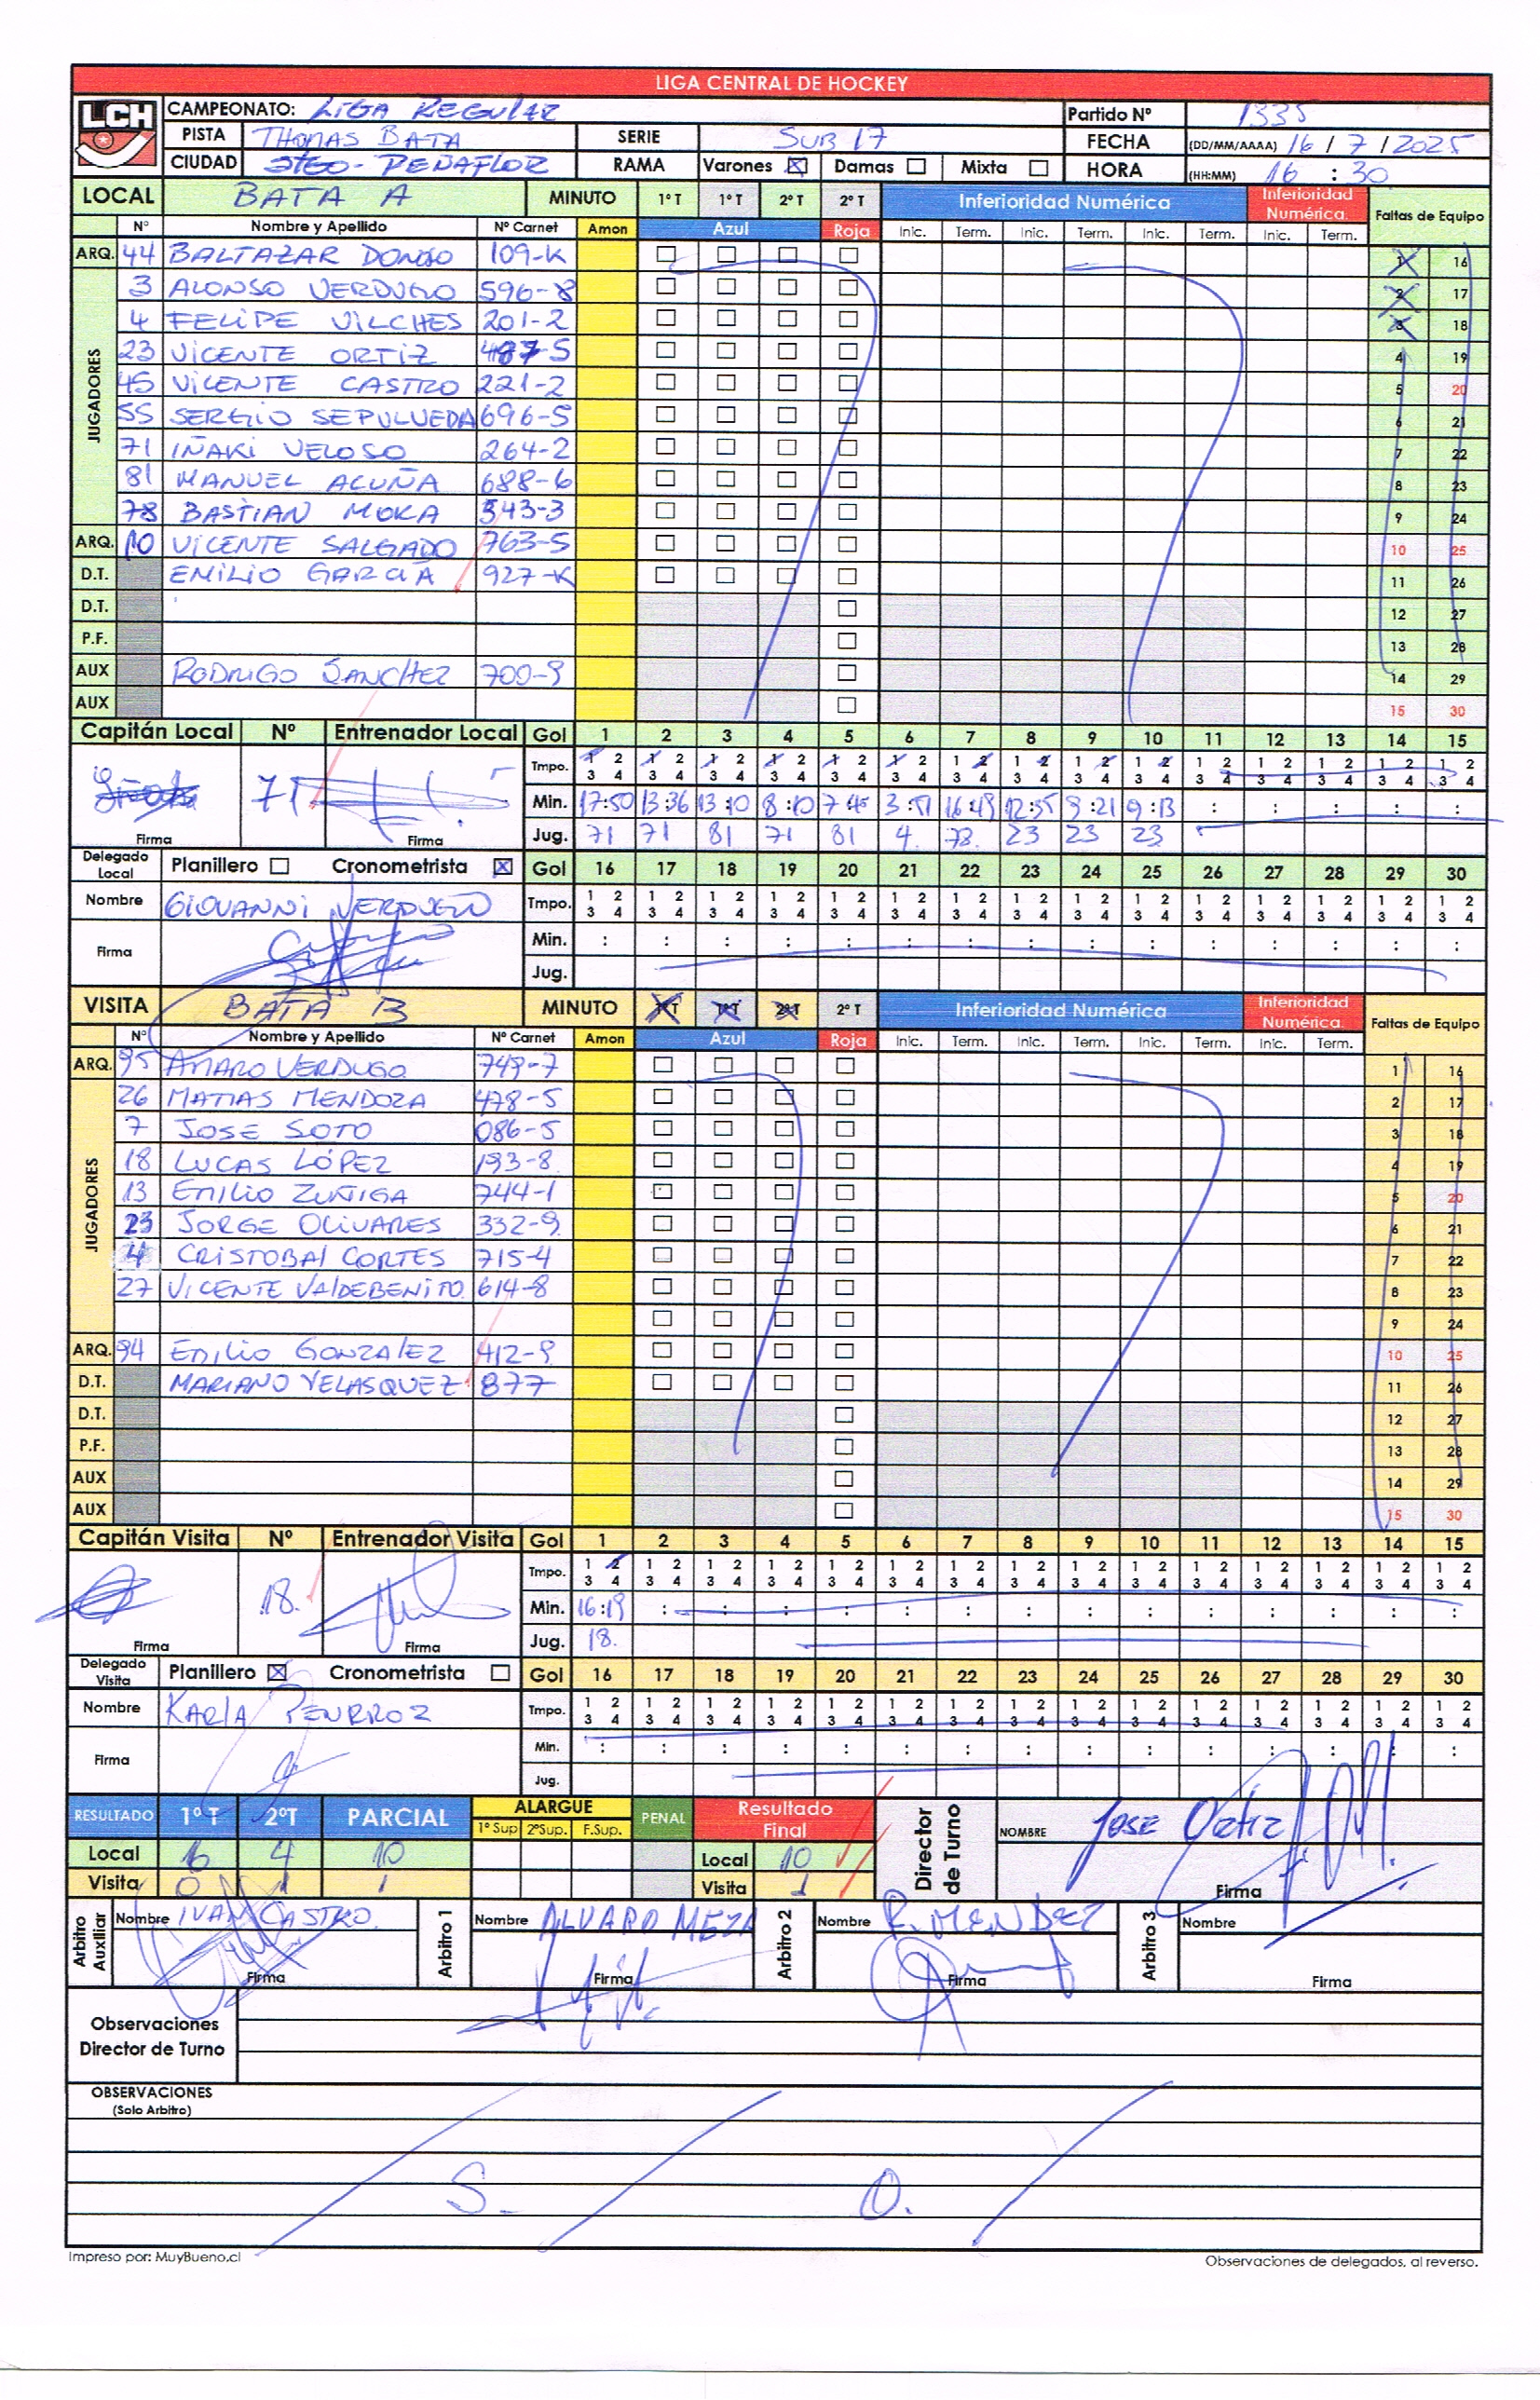 LIGA CENTRAL DE HOCKEY
LCH
CAMPEONATO: LIGA REGULAR Partido Nº 1335
PISTA THOMAS BATA SERIE SUB 17 FECHA (DD/MM/AAAA) 16 / 7 / 2025
CIUDAD STGO - PEÑAFLOR RAMA Varones ☒ Damas ☐ Mixta ☐ HORA (HH:MM) 16 : 30
LOCAL BATA A MINUTO 1º T 1º T 2º T 2º T Inferioridad Numérica Inferioridad Numérica. Faltas de Equipo
Nº Nombre y Apellido Nº Carnet Amon Azul Roja Inic. Term. Inic. Term. Inic. Term. Inic. Term.
JUGADORES
ARQ. 44 BALTAZAR DONOSO 109-K 1 16
3 ALONSO VERDUGO 596-8 2 17
4 FELIPE VILCHES 201-2 3 18
23 VICENTE ORTIZ 487-5 4 19
45 VICENTE CASTRO 221-2 5 20
55 SERGIO SEPULVEDA 696-5 6 21
71 IÑAKI VELOSO 264-2 7 22
81 MANUEL ACUÑA 688-6 8 23
78 BASTIAN MORA 543-3 9 24
ARQ. 10 VICENTE SALGADO 763-5 10 25
D.T. EMILIO GARCIA 927-K 11 26
D.T. 12 27
P.F. 13 28
AUX RODRIGO SANCHEZ 700-9 14 29
AUX 15 30
Capitán Local Nº Entrenador Local Gol 1 2 3 4 5 6 7 8 9 10 11 12 13 14 15
Tmpo. 1 2 1 2 1 2 1 2 1 2 1 2 1 2 1 2 1 2 1 2 1 2 1 2 1 2 1 2 1 2
3 4 3 4 3 4 3 4 3 4 3 4 3 4 3 4 3 4 3 4 3 4 3 4 3 4 3 4 3 4
71 Min. 17:50 13:36 13:10 8:10 7:45 3:51 16:49 12:55 9:21 9:13 : : : : :
Firma Firma Jug. 71 71 81 71 81 4. 78. 23 23 23
Delegado Local Planillero ☐ Cronometrista ☒ Gol 16 17 18 19 20 21 22 23 24 25 26 27 28 29 30
Nombre GIOVANNI VERDUGO Tmpo. 1 2 1 2 1 2 1 2 1 2 1 2 1 2 1 2 1 2 1 2 1 2 1 2 1 2 1 2 1 2
3 4 3 4 3 4 3 4 3 4 3 4 3 4 3 4 3 4 3 4 3 4 3 4 3 4 3 4 3 4
Firma Min. : : : : : : : : : : : : : : :
Jug.
VISITA BATA B MINUTO 1º T 1º T 2º T 2º T Inferioridad Numérica Inferioridad Numérica. Faltas de Equipo
Nº Nombre y Apellido Nº Carnet Amon Azul Roja Inic. Term. Inic. Term. Inic. Term. Inic. Term.
JUGADORES
ARQ. 95 AMARO VERDUGO 749-7 1 16
26 MATIAS MENDOZA 478-5 2 17
7 JOSE SOTO 086-5 3 18
18 LUCAS LÓPEZ 193-8. 4 19
13 EMILIO ZUÑIGA 744-1 5 20
23 JORGE OLIVARES 332-9. 6 21
4 CRISTOBAL CORTES 715-4 7 22
27 VICENTE VALDEBENITO. 614-8 8 23
9 24
ARQ. 94 EMILIO GONZALEZ 412-9 10 25
D.T. MARIANO VELASQUEZ 877 11 26
D.T. 12 27
P.F. 13 28
AUX 14 29
AUX 15 30
Capitán Visita Nº Entrenador Visita Gol 1 2 3 4 5 6 7 8 9 10 11 12 13 14 15
Tmpo. 1 2 1 2 1 2 1 2 1 2 1 2 1 2 1 2 1 2 1 2 1 2 1 2 1 2 1 2 1 2
3 4 3 4 3 4 3 4 3 4 3 4 3 4 3 4 3 4 3 4 3 4 3 4 3 4 3 4 3 4
18. Min. 16:19 : : : : : : : : : : : : : :
Firma Firma Jug. 18.
Delegado Visita Planillero ☒ Cronometrista ☐ Gol 16 17 18 19 20 21 22 23 24 25 26 27 28 29 30
Nombre KARLA PENRROZ Tmpo. 1 2 1 2 1 2 1 2 1 2 1 2 1 2 1 2 1 2 1 2 1 2 1 2 1 2 1 2 1 2
3 4 3 4 3 4 3 4 3 4 3 4 3 4 3 4 3 4 3 4 3 4 3 4 3 4 3 4 3 4
Firma Min. : : : : : : : : : : : : : : :
Jug.
RESULTADO 1º T 2ºT PARCIAL ALARGUE PENAL Resultado Final Director de Turno NOMBRE JOSE Ortiz
1º Sup 2ºSup. F.Sup.
Local 6 4 10 Local 10
Visita 0 1 1 Visita 1 Firma
Arbitro Auxiliar Nombre IVAN CASTRO. Arbitro 1 Nombre ALVARO MEZA Arbitro 2 Nombre R. MENDEZ Arbitro 3 Nombre
Firma Firma Firma Firma
Observaciones
Director de Turno
OBSERVACIONES
(Solo Arbitro)
S. / O.
Impreso por: MuyBueno.cl Observaciones de delegados, al reverso.